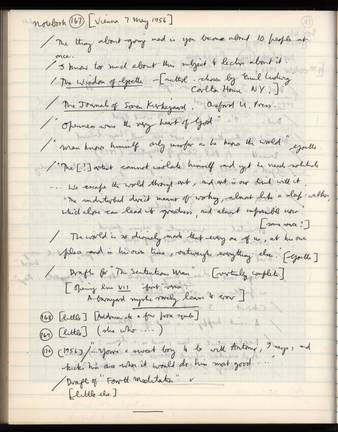 Notebook (167) [Vienna 7 May 1956]
/ The thing about going mad is you become about 10 people at
once.
/ I know too much about this subject to lecture about it
/ The Wisdom of Goethe - chosen by Emil Ludwig
Carlton House N.Y.]
/ The Journals of Soren Kierkegaard. Oxford U. Press.
/ "Openness was the very heart of God"
/ "Man knows himself only insofar as he knows the world" Goethe
/ "The [?] artist cannot isolate himself and yet he needs solitude
.... We escape the world through art, and art is our link with it.
The undisturbed direct manner of working, almost like a sleep-walker,
which alone can lead to greatness, and almost impossible now."
[same source?]
/ The world is so divinely made that every one of us, at his own
place and in his own time, outweighs everything else." [Goethe]
/ Drafts for "The Sententious Man" [virtually complete]
[Opening line VII first version
A barnyard rarely learns to err]
(168) [little]
(169) [little] (she who ....)
(170) (1956) " a sweet boy to be with Antoine, I says, and
kick his ass when it would do him most good....
/ Drafts of "Fourth Meditation"
[little else]